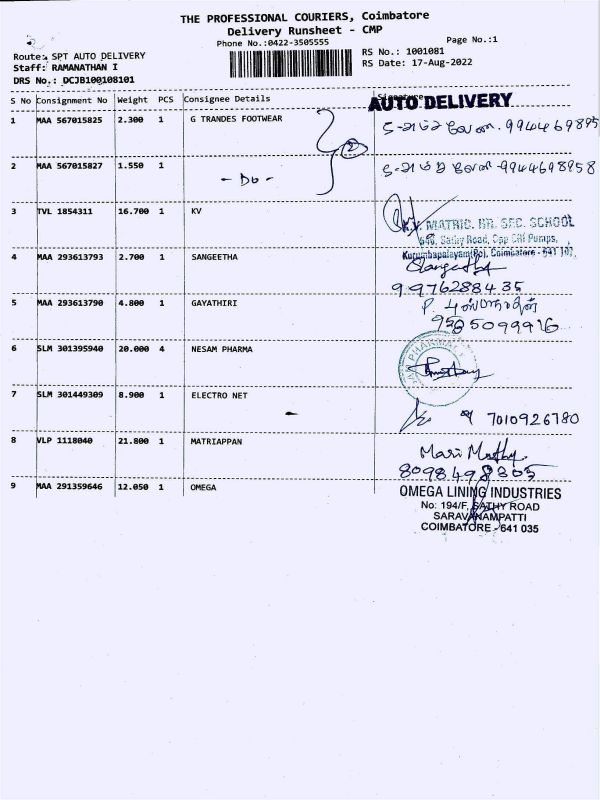 THE PROFESSIONAL COURIERS, Coimbatore
Delivery Runsheet - CMP
Phone No.:0422-3505555
Page No.:1
Route: SPT AUTO DELIVERY
Staff: RAMANATHAN I
DRS No.: DCJB100108101
RS No.: 1001081
RS Date: 17-Aug-2022
S No Consignment No Weight PCS Consignee Details Signature
AUTO DELIVERY
1 MAA 567015825 2.300 1 G TRANDES FOOTWEAR
2
2 MAA 567015827 1.550 1 9944698958
- Do -
3 TVL 1854311 16.700 1 KV
K.V. MATRIC. HR. SEC. SCHOOL
546, Sathy Road, Opp CRI Pumps,
Kurumbapalayam(Po), Coimbatore - 641 107.
4 MAA 293613793 2.700 1 SANGEETHA Sangeetha
9976288435
5 MAA 293613790 4.800 1 GAYATHIRI
6 SLM 301395940 20.000 4 NESAM PHARMA
PHARMA
7 SLM 301449309 8.900 1 ELECTRO NET
7010926780
8 VLP 1118040 21.800 1 MATRIAPPAN
Mari Muthu
8098498305
9 MAA 291359646 12.050 1 OMEGA
OMEGA LINING INDUSTRIES
No: 194/F, SATHY ROAD
SARAVANAMPATTI
COIMBATORE - 641 035